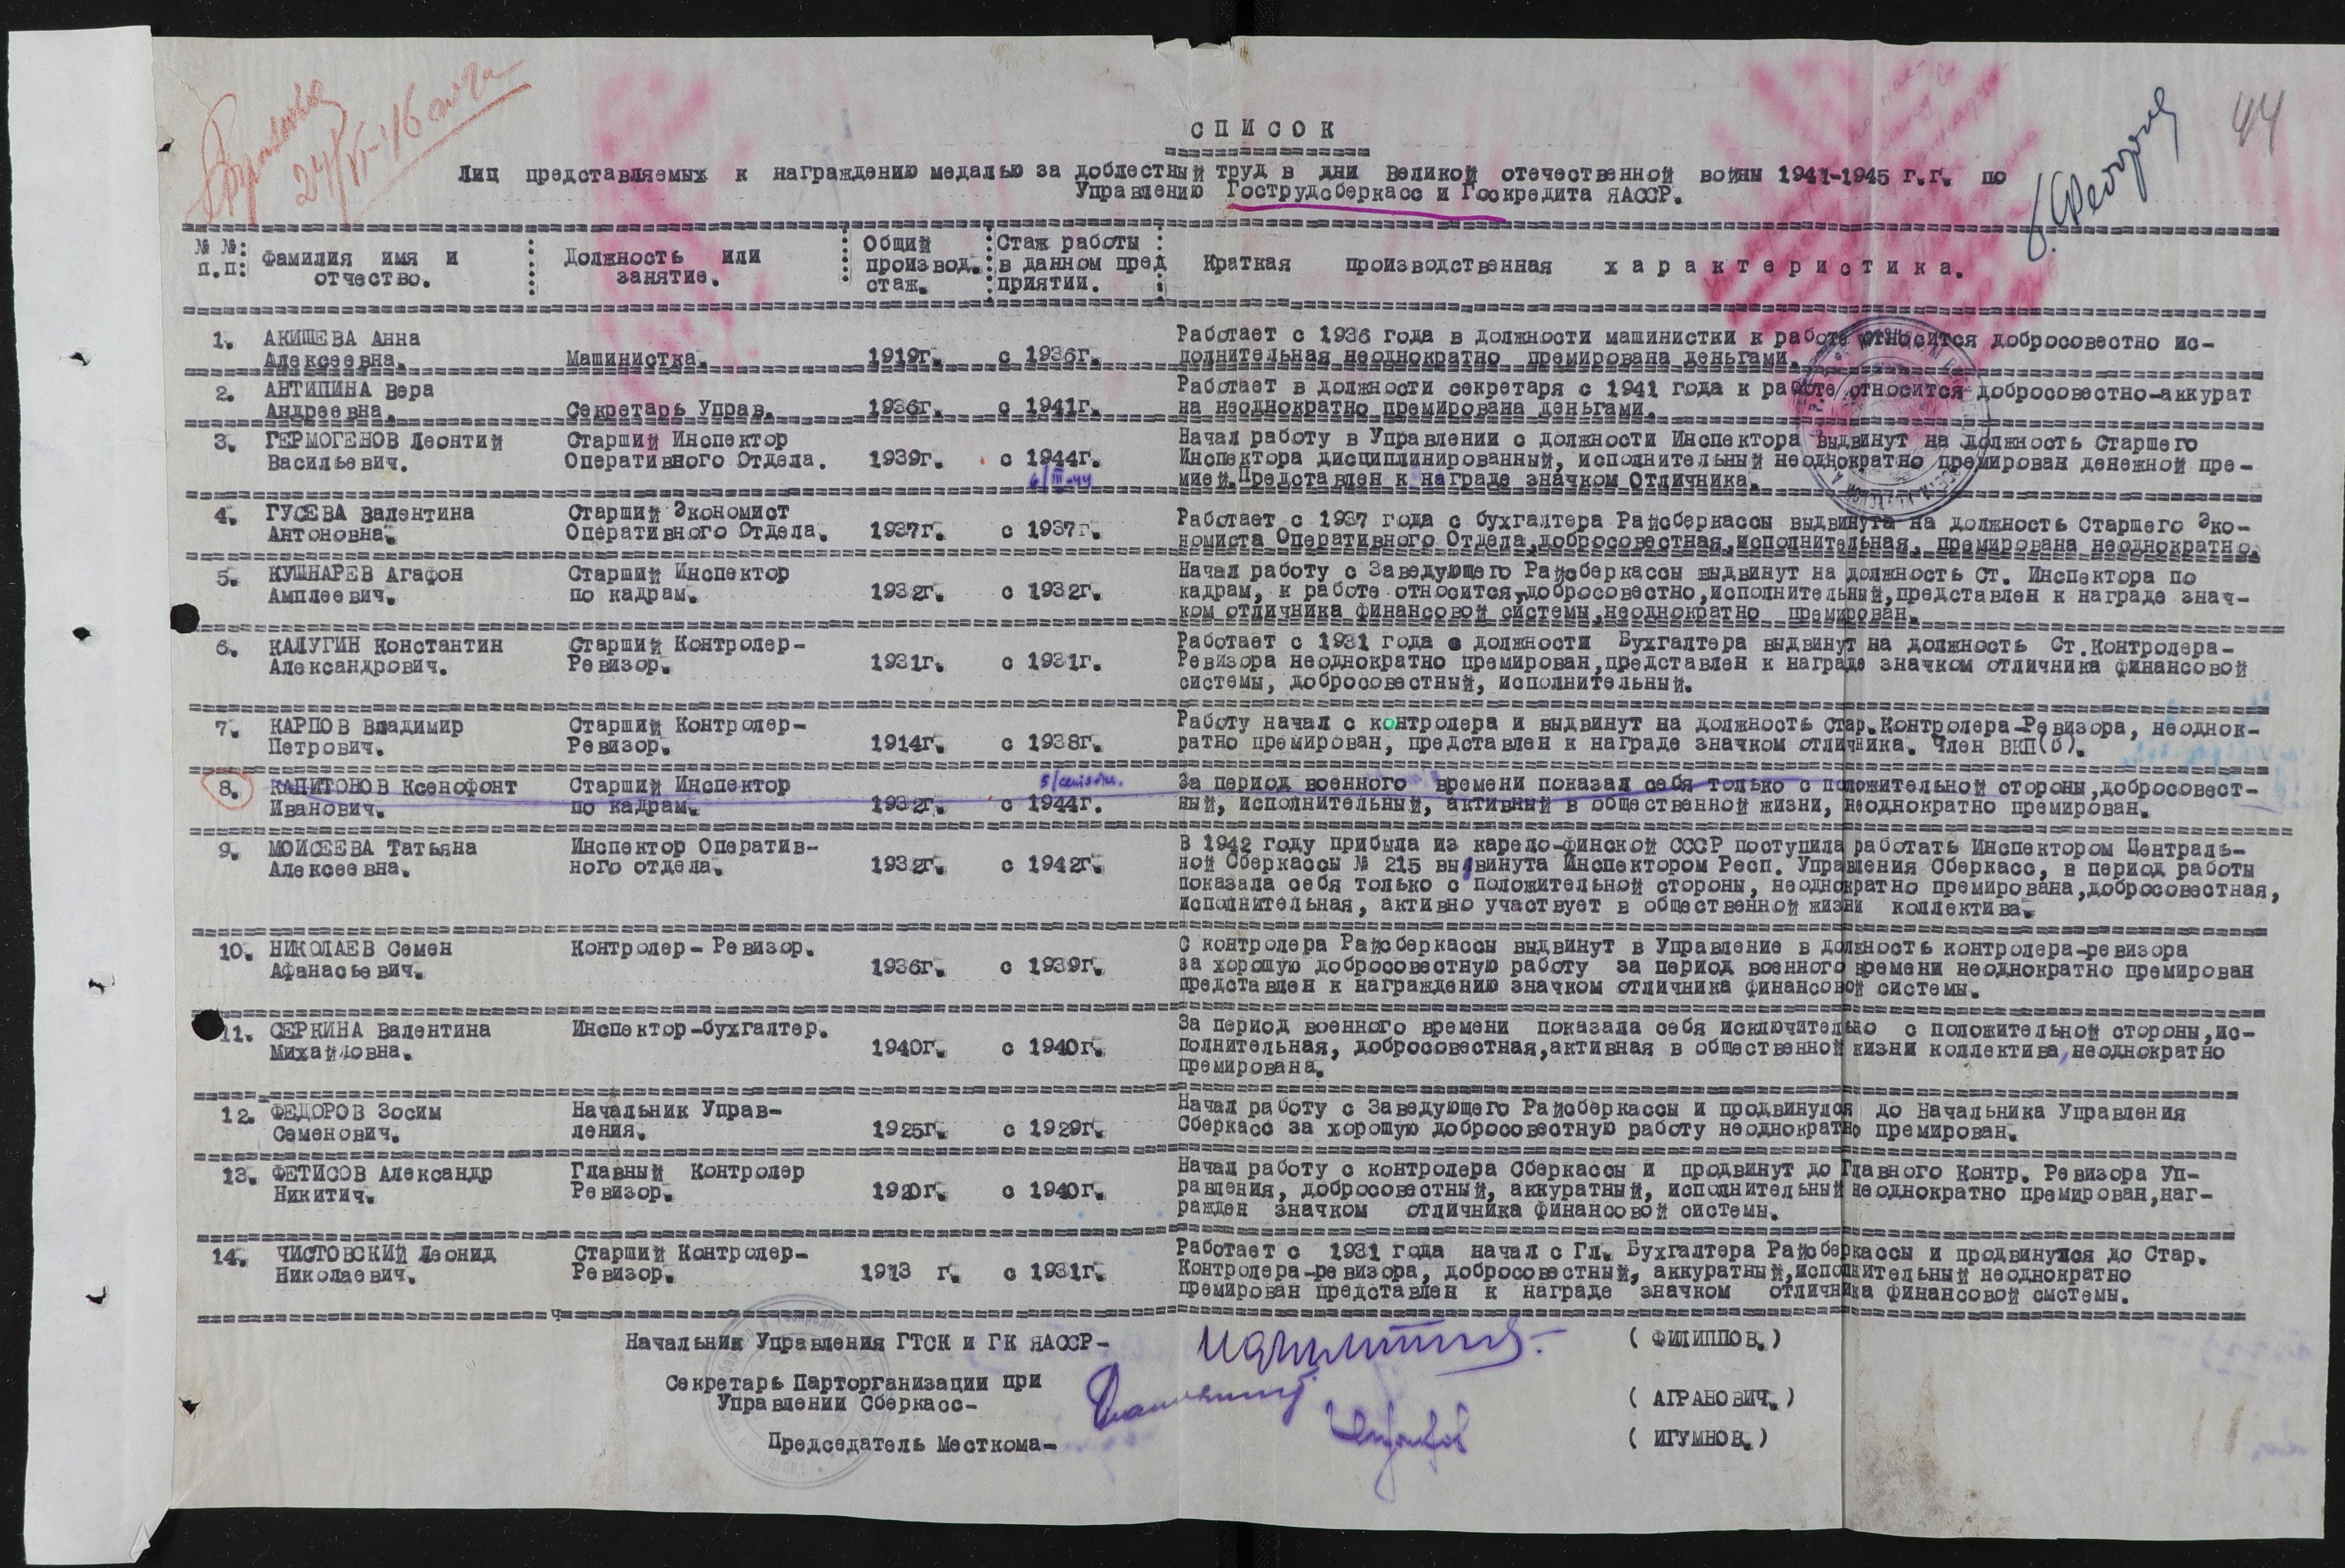 44
24/VI-46
СПИСОК
Лиц представляемых к награждению медалью за доблестный труд в дни Великой отечественной войны 1941-1945 г.г. по
Управлению Гострудсберкасс и Госкредита ЯАССР.
№ №: п.п:
Фамилия имя и отчество.
Должность или занятие.
Общий производ. стаж.
Стаж работы в данном пред приятии.
Краткая производственная характеристика.
1. АКИШЕВА Анна Работает с 1936 года в должности машинистки к работе относится добросовестно ис-
Алексеевна. Машинистка. 1919г. с 1936г. полнительная неоднократно премирована деньгами.
2. АНТИПИНА Вера Работает в должности секретаря с 1941 года к работе относится добросовестно-аккурат
Андреевна. Секретарь Управ. 1936г. с 1941г. на неоднократно премирована деньгами.
3. ГЕРМОГЕНОВ Леонтий Старший Инспектор Начал работу в Управлении с должности Инспектора выдвинут на должность Старшего
Васильевич. Оперативного Отдела. 1939г. с 1944г. Инспектора дисциплинированный, исполнительный неоднократно премирован денежной пре-
6/III-44 мией.Представлен к награде значком Отличника.
4. ГУСЕВА Валентина Старший Экономист Работает с 1937 года с бухгалтера Райсберкассы выдвинута на должность Старшего Эко-
Антоновна. Оперативного Отдела. 1937г. с 1937г. номиста Оперативного Отдела,добросовестная,исполнительная, премирована неоднократно.
5. КУШНАРЕВ Агафон Старший Инспектор Начал работу с Заведующего Райсберкассы выдвинут на должность Ст. Инспектора по
Амплеевич. по кадрам. 1932г. с 1932г. кадрам, к работе относится,добросовестно,исполнительный,представлен к награде знач-
ком отличника финансовой системы,неоднократно премирован.
6. КАЛУГИН Константин Старший Контролер- Работает с 1931 года с должности Бухгалтера выдвинут на должность Ст.Контролера-
Александрович. Ревизор. 1931г. с 1931г. Ревизора неоднократно премирован,представлен к награде значком отличника финансовой
системы, добросовестный, исполнительный.
7. КАРПОВ Владимир Старший Контролер- Работу начал с контролера и выдвинут на должность Стар.Контролера-Ревизора, неоднок-
Петрович. Ревизор. 1914г. с 1938г. ратно премирован, представлен к награде значком отличника. Член ВКП(б).
8. КАПИТОНОВ Ксенофонт Старший Инспектор За период военного времени показал себя только с положительной стороны,добросовест-
Иванович. по кадрам. 1932г. с 1944г. ный, исполнительный, активный в общественной жизни, неоднократно премирован.
9. МОИСЕЕВА Татьяна Инспектор Оператив- В 1942 году прибыла из карело-финской СССР поступила работать Инспектором Централь-
Алексеевна. ного отдела. 1932г. с 1942г. ной Сберкассы № 215 выдвинута Инспектором Респ. Управления Сберкасс, в период работы
показала себя только с положительной стороны, неоднократно премирована,добросовестная,
исполнительная, активно участвует в общественной жизни коллектива.
10. НИКОЛАЕВ Семен Контролер-Ревизор. С контролера Райсберкассы выдвинут в Управление в должность контролера-ревизора
Афанасьевич. 1936г. с 1939г. за хорошую добросовестную работу за период военного времени неоднократно премирован
представлен к награждению значком отличника финансовой системы.
11. СЕРКИНА Валентина Инспектор-бухгалтер. За период военного времени показала себя исключительно с положительной стороны,ис-
Михайловна. 1940г. с 1940г. полнительная, добросовестная,активная в общественной жизни коллектива,неоднократно
премирована.
12. ФЕДОРОВ Зосим Начальник Управ- Начал работу с Заведующего Райсберкассы и продвинулся до Начальника Управления
Семенович. ления. 1925г. с 1929г. Сберкасс за хорошую добросовестную работу неоднократно премирован.
13. ФЕТИСОВ Александр Главный Контролер Начал работу с контролера Сберкассы и продвинут до Главного Контр. Ревизора Уп-
Никитич. Ревизор. 1920г. с 1940г. равления, добросовестный, аккуратный, исполнительный неоднократно премирован,наг-
ражден значком отличника финансовой системы.
14. ЧИСТОВСКИЙ Леонид Старший Контролер- Работает с 1931 года начал с Гл. Бухгалтера Райсберкассы и продвинулся до Стар.
Николаевич. Ревизор. 1913 г. с 1931г. Контролера-ревизора, добросовестный, аккуратный,исполнительный неоднократно
премирован представлен к награде значком отличника финансовой смстемы.
Начальник Управления ГТСК и ГК ЯАССР- ( ФИЛИППОВ.)
Секретарь Парторганизации при
Управлении Сберкасс- ( АГРАНОВИЧ.)
Председатель Месткома- ( ИГУМНОВ.)